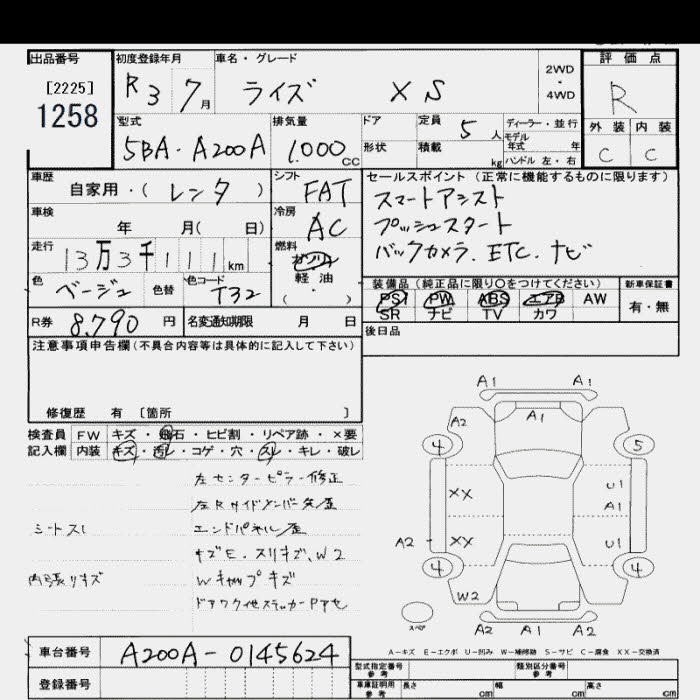 出品番号
[2225]
1258
初度登録年月
R3 7月
車名・グレード
ライズ XS
2WD
・
4WD
評価点
R
外装 内装
C C
型式
5BA-A200A
排気量
1,000 CC
ドア
形状
定員 5人
積載 kg
ディーラー・並行
モデル年式 年
ハンドル 左・右
車歴
自家用・(レンタ)
シフト
FAT
車検
年 月( 日)
冷房
AC
走行
13万3千111km
燃料
ガソリン
軽油
( )
色
ベージュ
色替
色コード
T32
R券 8,790円
名変通知期限 月 日
セールスポイント (正常に機能するものに限ります)
スマートアシスト
プッシュスタート
バックカメラ. ETC. ナビ
装備品 (純正品に限り○をつけてください)
PS PW ABS エアB AW
SR ナビ TV カワ
新車保証書
有・無
後日品
注意事項申告欄(不具合内容等は具体的に記入して下さい)
修復歴 有 [箇所 ]
検査員 FW キズ・飛石・ヒビ割・リペア跡・×要
記入欄 内装 キズ・汚レ・コゲ・穴・スレ・キレ・破レ
左センターピラー修正
左Rサイドメンバー矢歪
シートスレ エンドパネル歪
キズE. スリキズ. W2
内張リキズ Wキャップキズ
A1 A1
A2 A1
4 5
XX U1
A1
A2 XX U1
4 4
W2
スペア
A2 A1 A2
A-キズ E-エクボ U-凹み W-補修跡 S-サビ C-腐食 XX-交換済
車台番号 A200A-0145624
登録番号
型式指定番号 参考
類別区分番号 参考
車庫証明用 参考 長さ cm 幅 cm 高さ cm